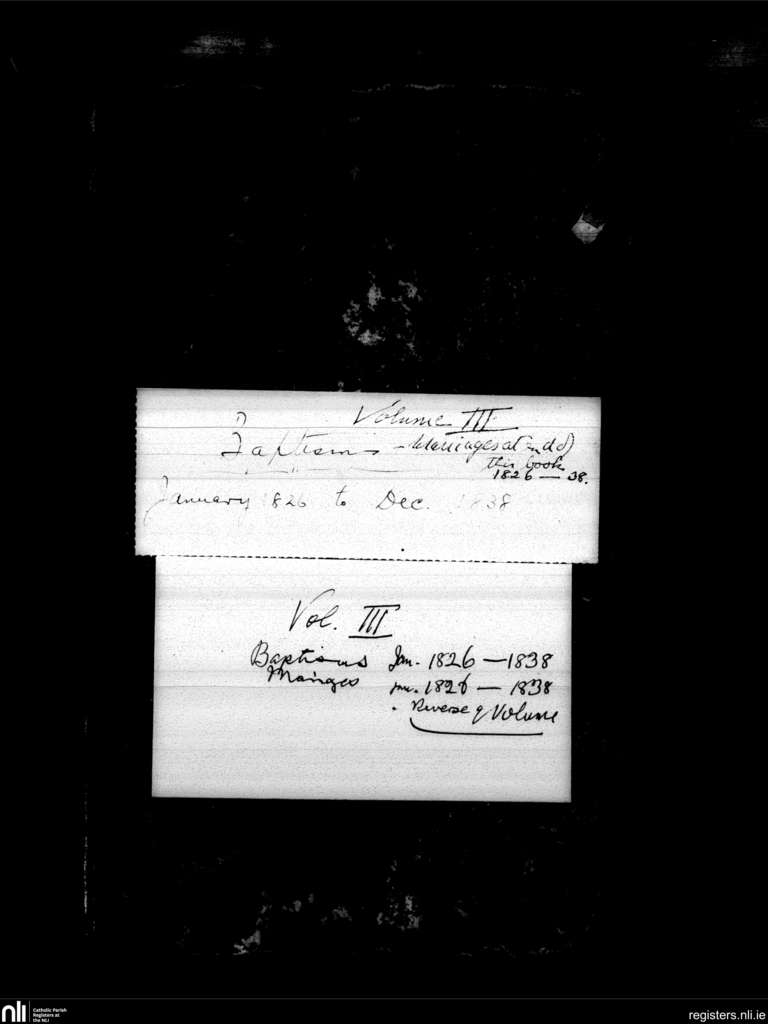 Volume III
Baptisms - Marriages at end of
this book
1826 — 38.
January 1826 to Dec. 1838
Vol. III
Baptisms Jan. 1826 — 1838
Marriages Jan. 1826 — 1838
Reverse of Volume
nli
Catholic Parish
Registers at
the NLI
registers.nli.ie